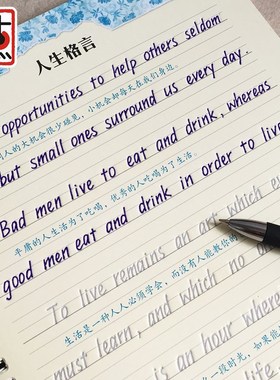 点
人生格言
opportunities to help others seldom
人的大机会很少碰见，小机会却每天在我们身边。
but small ones surround us every day.
Bad men live to eat and drink, whereas
平庸的人生活为了吃喝，优秀的人吃喝为了生活。
good men eat and drink in order to live
To live remains an art which ev
生活是一种人人必须学会，而没有人能教你的
must learn, and which no
is an hour where
一段时光，如果能
life